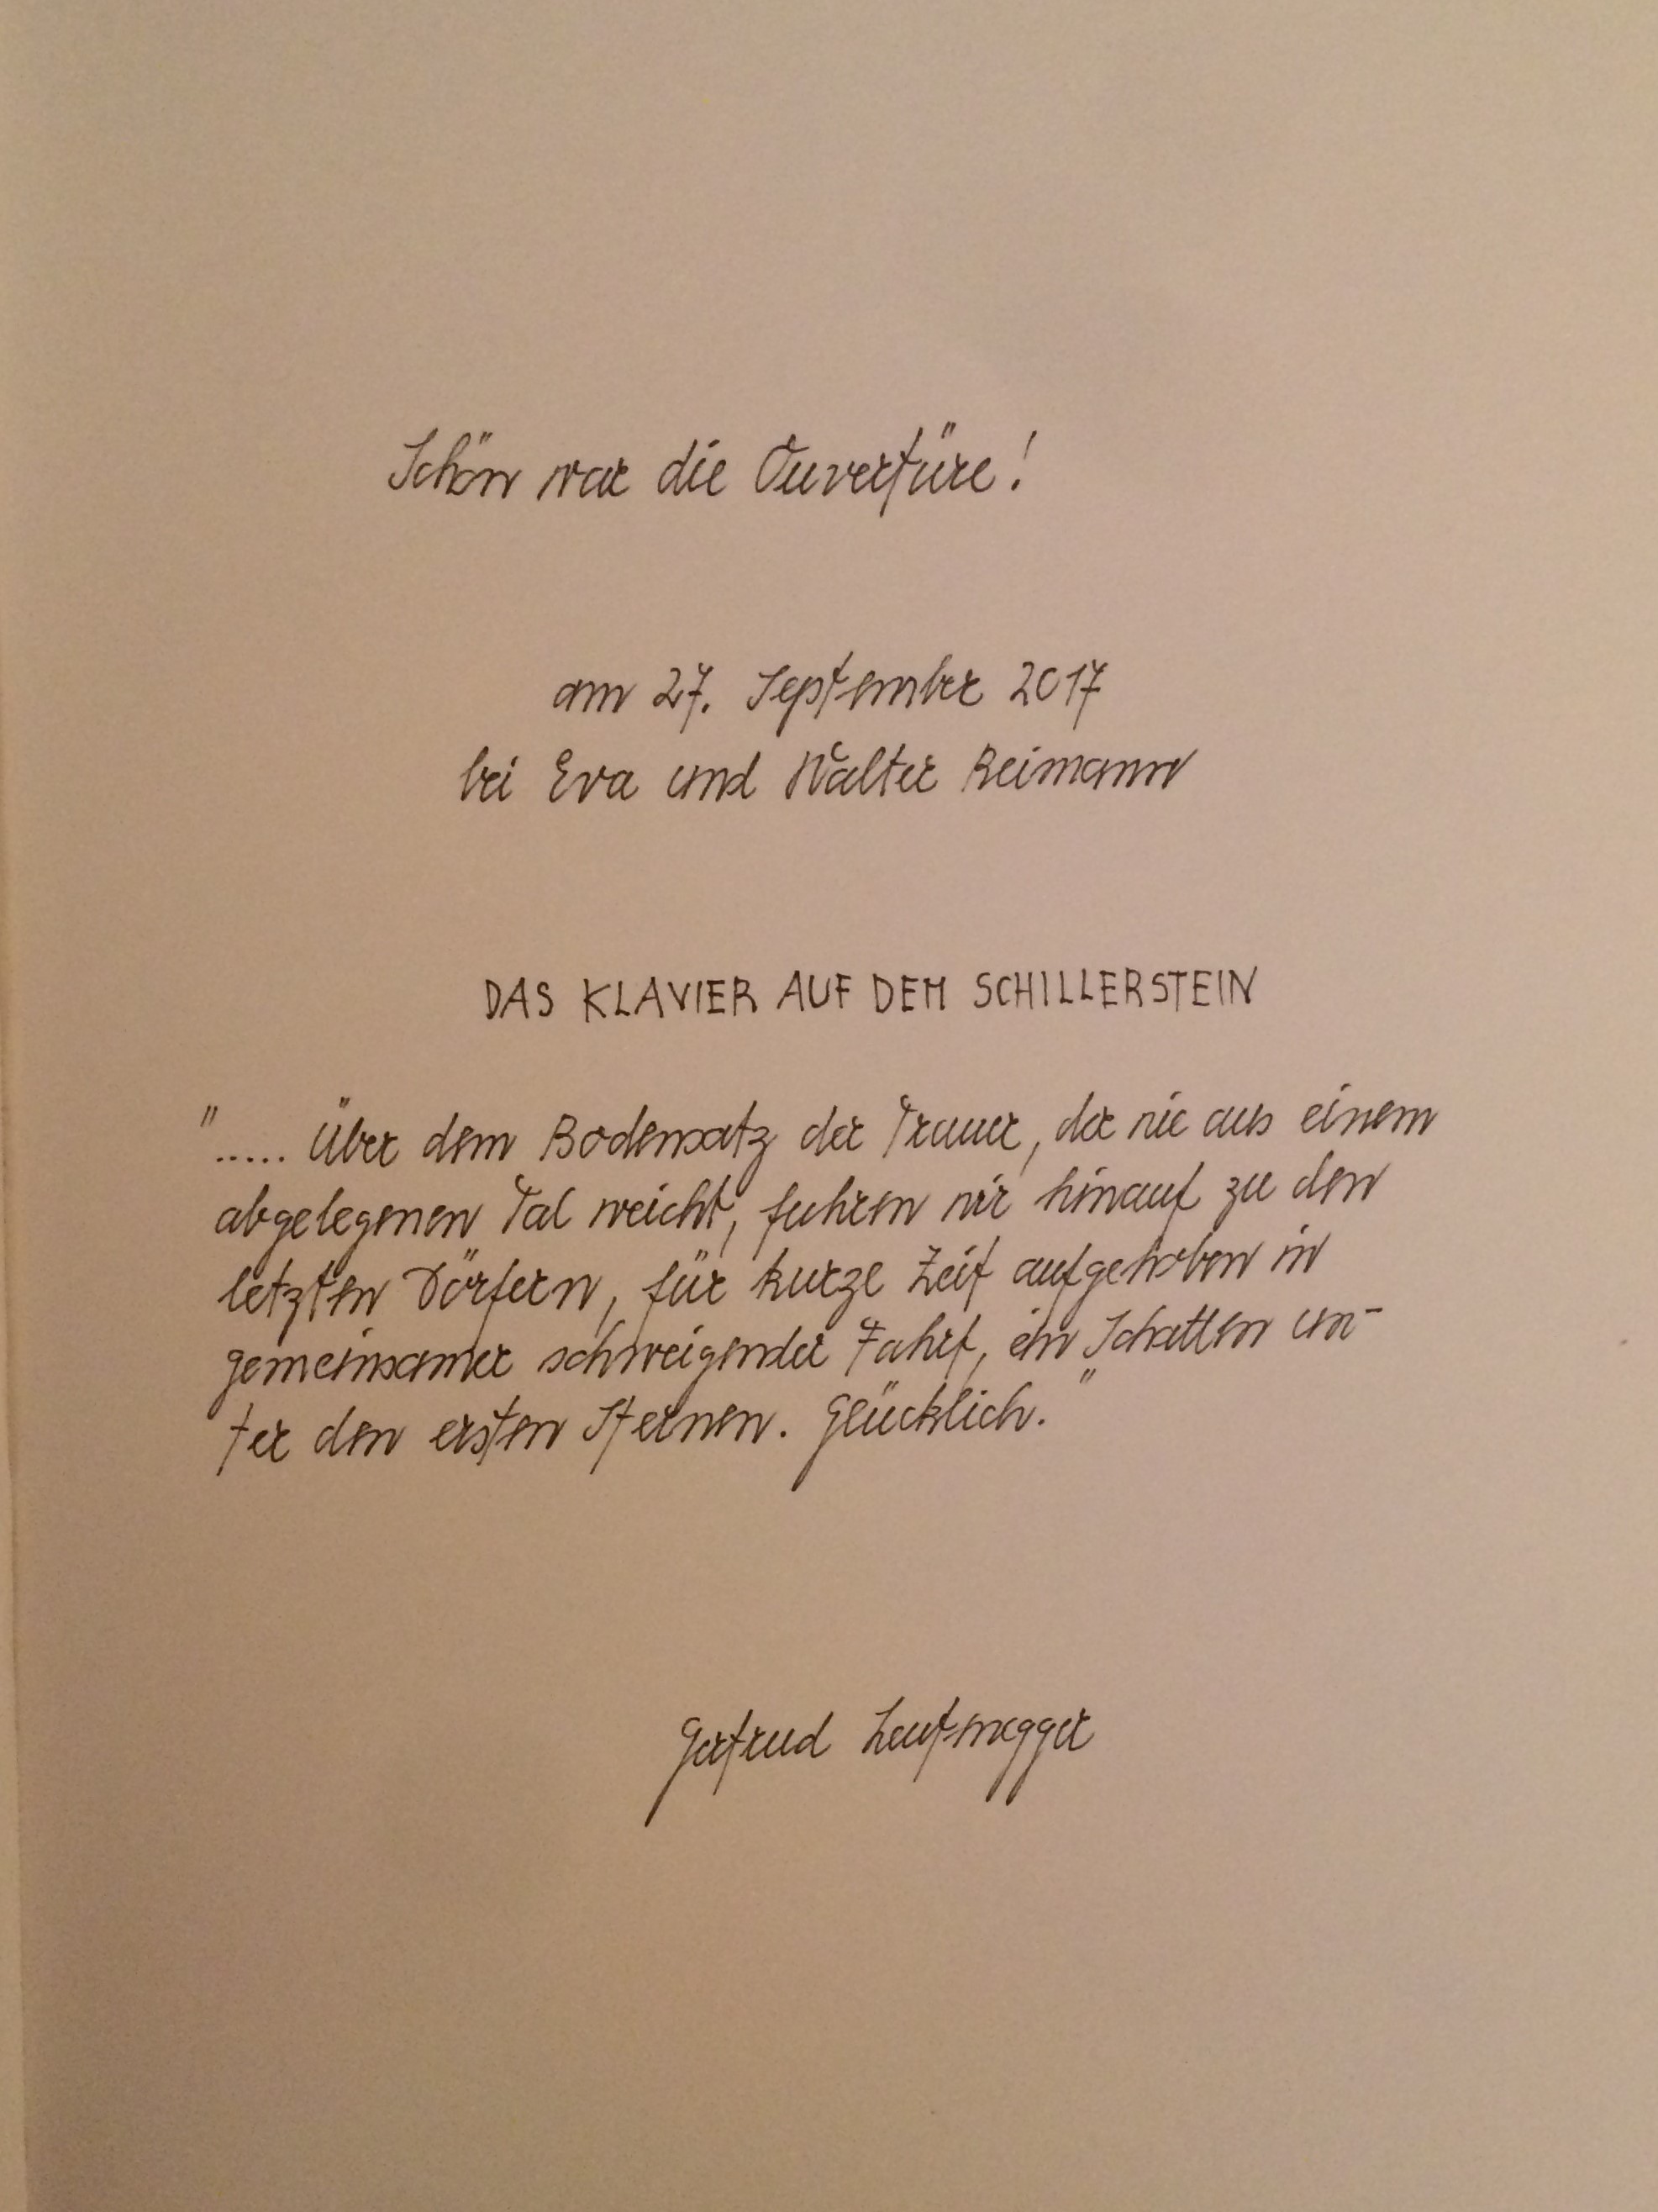 Schön war die Ouvertüre!
am 27. September 2017
bei Eva und Walter Reimann
DAS KLAVIER AUF DEM SCHILLERSTEIN
"..... Über dem Bodensatz der Trauer, der nie aus einem
abgelegenen Tal weicht, fuhren wir hinauf zu den
letzten Dörfern, für kurze Zeit aufgehoben in
gemeinsamer schweigender Fahrt, ein Schatten un-
ter den ersten Sternen. Glücklich."
Gertrud Leutenegger